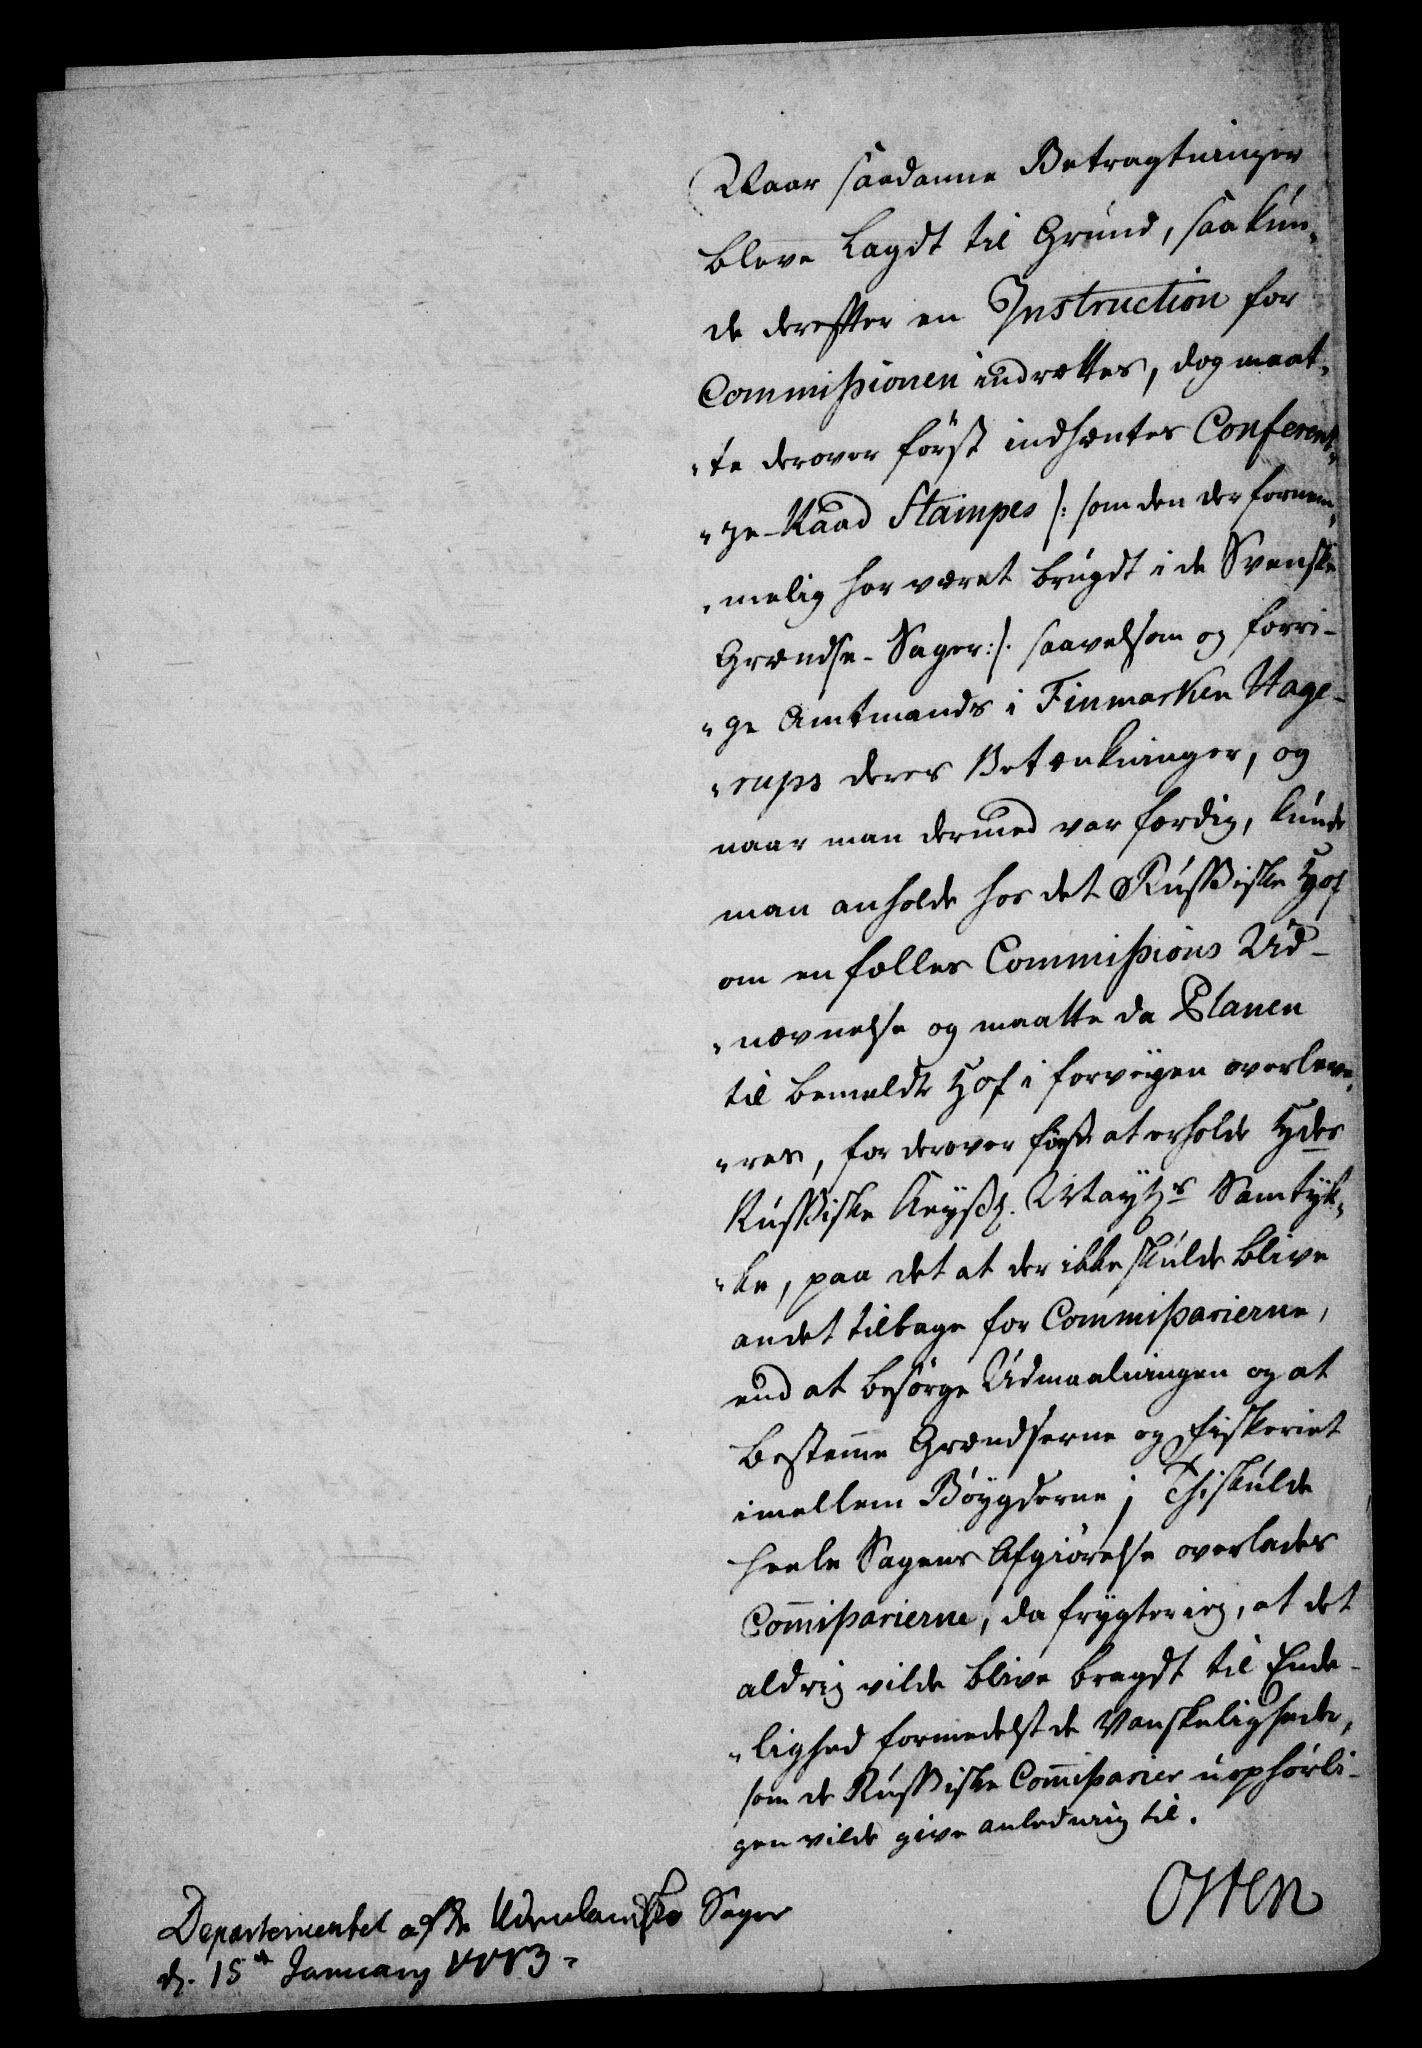 Naar saadanne Betragtninger
bleve lagdt til Grund, saa kun,
de derefter en Instruction for
Commissionen indrettes, dog maat,
"te derover först indhæntes Conferent,
"ze-Raad Stampes /: som den der fornem,
"melig har været brúgdt i de Svenske
Grændse-Sager :/. saavelsom og forri-
"ge Amtmands i Finmarken Hage-
"rups deres Betænkninger, og
naar man dermed var færdig, kúnde
man anholde hos det Rússiske Hof
om en fælles Commissions Ud-
"nævnelse og maatte da Planen
til bemeldte Hof i forveyen overleve,
"res, for derover först at erholde Hdes
Rússiske Keysl. Mayts Samtÿk,
"ke, paa det at der ikke skúlde blive
andet tilbage for Commissarierne,
end at besörge Údmaalningen og at
bestemme Grændserne og Fiskeriet
imellem Böygderne; Thi skúlde
heele Sagens Afgiörelse overlades
Com̅issarierne, da frÿgter ieg, at det
aldrig vilde blive bragdt til Ende-
"lighed formedelst de Vanskeligheder,
som de Rússiske Com̅issarier úophörli-
gen vilde give anledning til.
Osten
Departementet af de Udenlandske Sager
d. 15de January 1773.